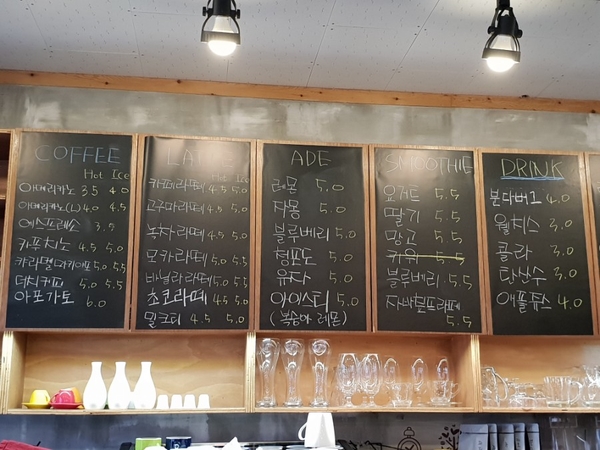 COFFEE
Hot Ice
아메리카노 3.5 4.0
아메리카노(L) 4.0 4.5
에스프레소 3.5
카푸치노 4.5 5.0
카라멜마키아또 5.0 5.5
더치커피 5.0 5.5
아포가토 6.0
LATTE
Hot Ice
카페라떼 4.5 5.0
고구마라떼 4.5 5.0
녹차라떼 4.5 5.0
모카라떼 5.0 5.5
바닐라라떼 5.0 5.5
초코라떼 4.5 5.0
밀크티 4.5 5.0
ADE
레몬 5.0
자몽 5.0
블루베리 5.0
청포도 5.0
유자 5.0
아이스티 5.0
(복숭아 레몬)
SMOOTHIE
요거트 5.5
딸기 5.5
망고 5.5
키위 5.5
블루베리 5.5
자바칩프라페
5.5
DRINK
분다버그 4.0
웰치스 3.0
콜라 3.0
탄산수 3.0
애플쥬스 4.0